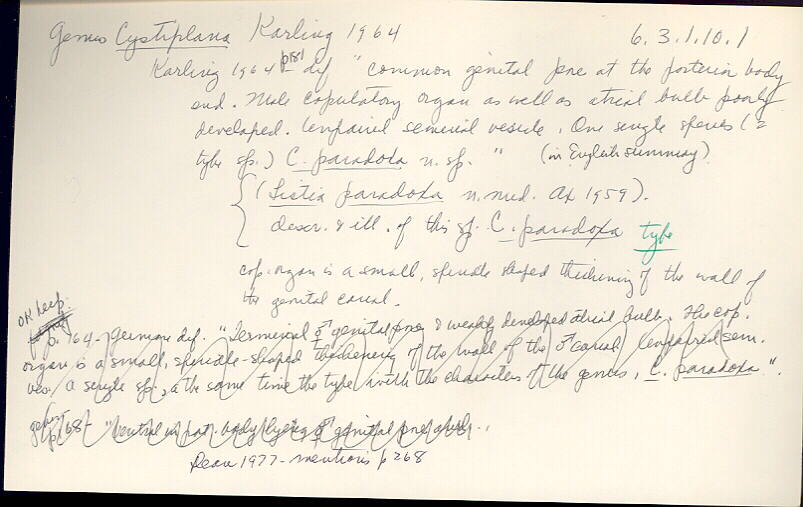 Genus Cystiplana Karling 1964 6.3.1.10.1
Karling 1964 p181 - def "common genital pore at the posterior body
end. Male copulatory organ as well as atrial bulb poorly
developed. Unpaired seminal vesicle. One single species (=
type sp.) C. paradoxa n. sp." (in English summary)
(Listia paradoxa n. nud. Ax 1959).
descr. & ill. of this sp. C. paradoxa type
cop. organ is a small, spindle shaped thickening of the wall of
the genital canal.
OK keep.
p. 164 - German def. "Terminal ♂ genital pore & weakly developed atrial bulb. The cop.
organ is a small, spindle-shaped thickening of the wall of the ♂ canal. Unpaired sem.
ves. a single sp., at the same time the type with the characters of the genus, C. paradoxa".
p168 - "Ventral in post. body genital pore
Dean 1977 - mentions p 268